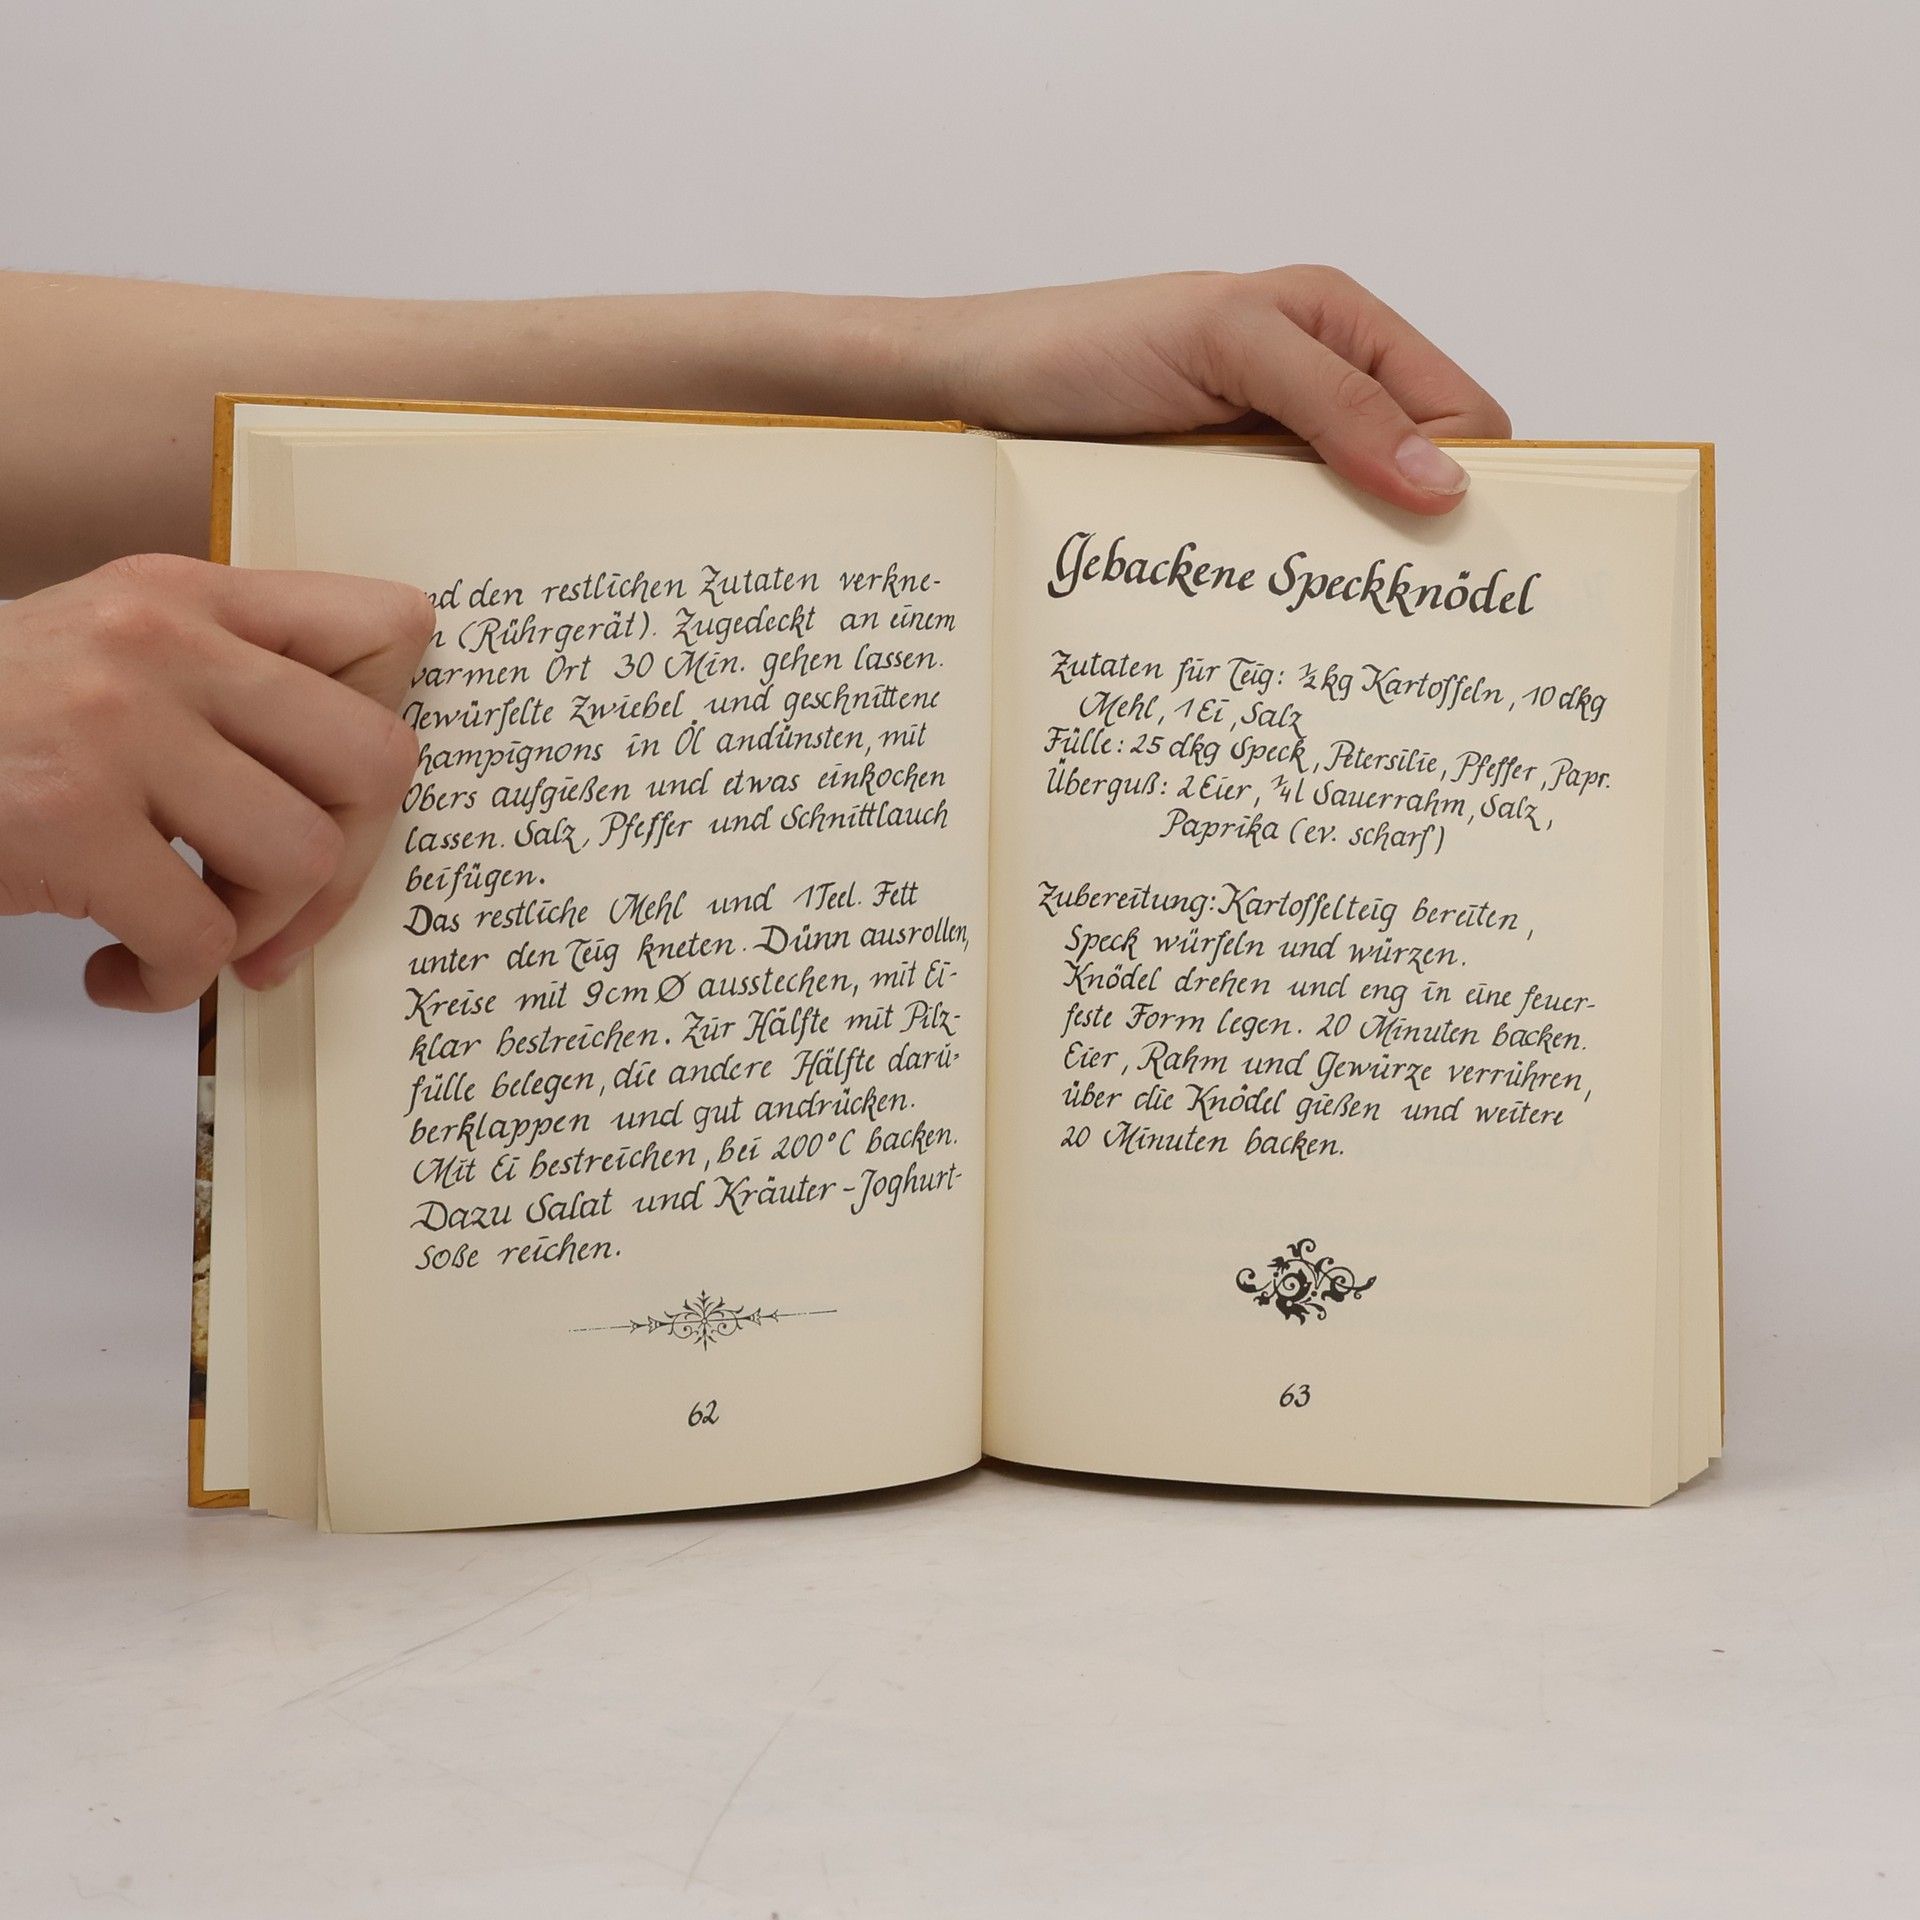 den restlichen Zutaten verkne-
(Rührgerät). Zugedeckt an einem
warmen Ort 30 Min. gehen lassen.
Gewürfelte Zwiebel und geschnittene
Champignons in Öl andünsten, mit
Obers aufgießen und etwas einkochen
lassen. Salz, Pfeffer und Schnittlauch
beifügen.
Das restliche Mehl und 1 Teel. Fett
unter den Teig kneten. Dünn ausrollen,
Kreise mit 9cm Ø ausstechen, mit Ei-
klar bestreichen. Zur Hälfte mit Pilz-
fülle belegen, die andere Hälfte darü-
berklappen und gut andrücken.
Mit Ei bestreichen, bei 200°C backen.
Dazu Salat und Kräuter-Joghurt-
soße reichen.
62
Gebackene Speckknödel
Zutaten für Teig: ½ kg Kartoffeln, 10 dkg
Mehl, 1 Ei, Salz
Fülle: 25 dkg Speck, Petersilie, Pfeffer, Papr.
Überguß: 2 Eier, l Sauerrahm, Salz,
Paprika (ev. scharf)
Zubereitung: Kartoffelteig bereiten,
Speck würfeln und würzen.
Knödel drehen und eng in eine feuer-
feste Form legen. 20 Minuten backen.
Eier, Rahm und Gewürze verrühren,
über die Knödel gießen und weitere
20 Minuten backen.
63